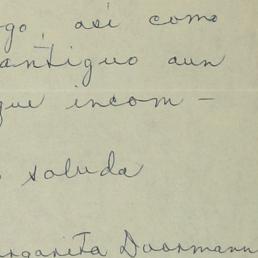 go, así como
antiguo aun
que incom-
saluda
argarita Doormann